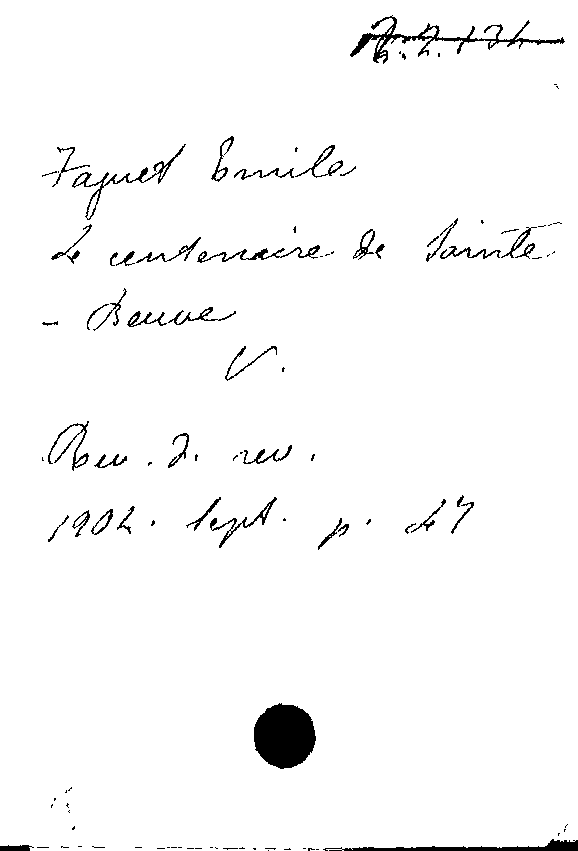 Faguet Emile
Le centenaire de Sainte
- Beuve
V.
Rev. d. rev.
1904. sept. p. 47